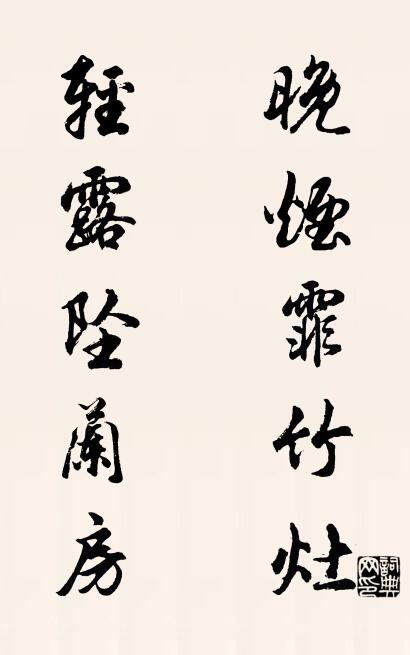 晚煙霏竹灶
輕露墜蘭房
詞典網印